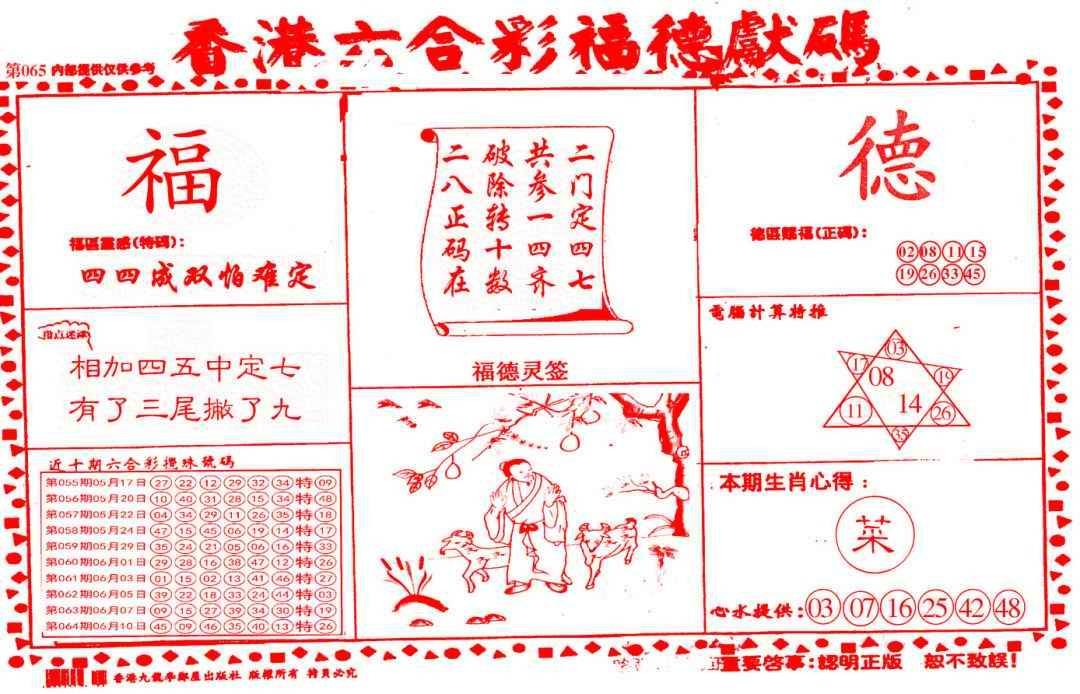 香港六合彩福德獻碼
第065 内部提供仅供参考
福
福區靈感(特碼):
四四成双怕难定
相加四五中定七
有了三尾撇了九
近十期六合彩攪珠號碼
第055期05月17日 27 22 12 29 32 34 特 09
第056期05月20日 10 40 31 28 15 34 特 48
第057期05月22日 04 34 29 11 26 35 特 18
第058期05月24日 47 15 45 06 19 14 特 17
第059期05月29日 35 24 21 05 06 16 特 33
第060期06月01日 29 28 16 38 47 12 特 26
第061期06月03日 01 15 02 13 41 46 特 27
第062期06月05日 39 22 18 33 24 44 特 03
第063期06月07日 09 15 27 39 34 30 特 19
第064期06月10日 45 09 46 35 40 13 特 26
二门定四七
共参一四齐
破除转十数
二八正码在
福德灵签
德
德區賜福(正碼):
02 08 11 15
19 26 33 45
電腦計算特推
03
17 08 19
11 14 26
35
本期生肖心得:
菜
心水提供: 03 07 16 25 42 48
版權所有
重要啓事:認明正版 恕不致誤!